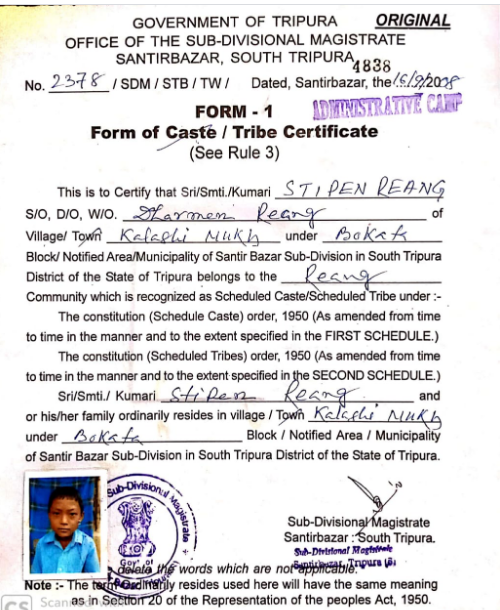 GOVERNMENT OF TRIPURA ORIGINAL
OFFICE OF THE SUB-DIVISIONAL MAGISTRATE
SANTIRBAZAR, SOUTH TRIPURA
4838
No. 2378 / SDM / STB / TW / Dated, Santirbazar, the 16/9/2008
ADMINISTRATIVE CAMP
FORM - 1
Form of Caste / Tribe Certificate
(See Rule 3)
This is to Certify that Sri/Smti./Kumari STIPEN REANG
S/O, D/O, W/O. Dharmen Reang of
Village/ Town Kalashi Mukh under Bokafa
Block/ Notified Area/Municipality of Santir Bazar Sub-Division in South Tripura
District of the State of Tripura belongs to the Reang
Community which is recognized as Scheduled Caste/Scheduled Tribe under :-
The constitution (Schedule Caste) order, 1950 (As amended from time
to time in the manner and to the extent specified in the FIRST SCHEDULE.)
The constitution (Scheduled Tribes) order, 1950 (As amended from time
to time in the manner and to the extent specified in the SECOND SCHEDULE.)
Sri/Smti./ Kumari Stipen Reang and
or his/her family ordinarily resides in village / Town Kalashi Mukh
under Bokafa Block / Notified Area / Municipality
of Santir Bazar Sub-Division in South Tripura District of the State of Tripura.
Sub-Divisional Magistrate
Govt of
Sub-Divisional Magistrate
Santirbazar : South Tripura.
Sub-Divisional Magistrate
Santirbazar, Tripura (S)
delete the words which are not applicable.
Note :- The term Ordinarily resides used here will have the same meaning
as in Section 20 of the Representation of the peoples Act, 1950.
CS Scanned